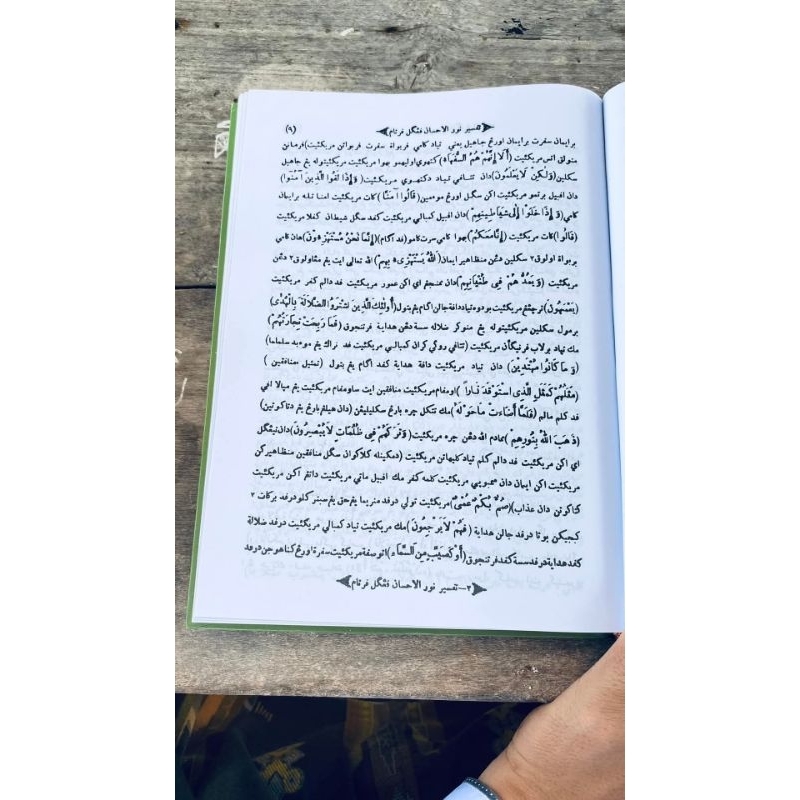 تفسير نور الاحسان فڠگل فرتام (٩)
برايمان سفرت برايمان اورڠ جاهيل يعني تياد کامي فربواة سفرت فربواتن مريکئيت) فرمانن
منولق اتس مريکئيت (أَلَا إِنَّهُمْ هُمُ السُّفَهَاءُ) کتهوي اوليهمو بهوا مريکئيت مريکئيتوله يڠ جاهيل
سکلين (وَلَٰكِن لَّا يَعْلَمُونَ) دان تتافي تياد دکتهوي مريکئيت (وَإِذَا لَقُوا الَّذِينَ آمَنُوا)
دان افبيل برتمو مريکئيت اکن سگل اورڠ مومنين (قَالُوا آمَنَّا) کات مريکئيت امنا تله برايمان
کامي (وَإِذَا خَلَوْا إِلَىٰ شَيَاطِينِهِمْ) دان افبيل کمبالي مريکئيت کفد سگل شيطان کفلا مريکئيت
(قَالُوا) کات مريکئيت (إِنَّا مَعَكُمْ) بهوا کامي سرت کامو (فد اگام) (إِنَّمَا نَحْنُ مُسْتَهْزِءُونَ) هان کامي
بربواة اولوق٢ سکلين دڠن منظاهيرايمان (اللَّهُ يَسْتَهْزِئُ بِهِمْ) الله تعالى ايت يڠ مڠاولوق٢ دڠن
مريکئيت (وَيَمُدُّهُمْ فِي طُغْيَانِهِمْ) دان ممنجڠ اي اکن عمور مريکئيت فد دالم کفر مريکئيت
(يَعْمَهُونَ) ترچڠڠ مريکئيت بودوه تياد دافة جالن اگام يڠ بنول (أُولَٰئِكَ الَّذِينَ اشْتَرَوُا الضَّلَالَةَ بِالْهُدَىٰ)
برمول سکلين مريکئيتوله يڠ منوکر ضلالة سسة دڠن هداية فرتنجوق (فَمَا رَبِحَت تِّجَارَتُهُمْ)
مك تياد برلاب فرنيݢأن مريکئيت (تتافي روڬي کران کمبالي مريکئيت فد نراک يڠ موءبد سلمالما)
(وَمَا كَانُوا مُهْتَدِينَ) دان تياد مريکئيت دافة هداية کفد اگام يڠ بنول (تمثيل منافقين)
(مَثَلُهُمْ كَمَثَلِ الَّذِي اسْتَوْقَدَ نَارًا) اومفام مريکئيت منافقين ايت ساومفام مريکئيت يڠ ميالا افي
فد کلم مالم (فَلَمَّا أَضَاءَتْ مَا حَوْلَهُ) مك تتکل چره بارڠ سکليلڠن (دان هيلڠ بارڠ يڠ دتاکوتين)
(ذَهَبَ اللَّهُ بِنُورِهِمْ) نمادم الله دڠن چره مريکئيت (وَتَرَكَهُمْ فِي ظُلُمَاتٍ لَّا يُبْصِرُونَ) دان تيڠگل
اي اکن مريکئيت فد دالم کلم تياد کليهاتن مريکئيت (دمکينله کلاکوان سگل منافقين منظاهيرکن
مريکئيت اکن ايمان دان سمبوني مريکئيت کلمه کفر مك افبيل ماتي مريکئيت داتڠ اکن مريکئيت
کتاکوتن دان عذاب) (صُمٌّ بُكْمٌ عُمْيٌ) مريکئيت تولي درفد منريما يڠ حق يڠ سبنر کلو درفد برکات ٢
کبجيکن بوتا درفد جالن هداية (فَهُمْ لَا يَرْجِعُونَ) مك مريکئيت تياد کمبالي مريکئيت درفد ضلالة
کفد هداية درفد سسة کفد فرتنجوق (أَوْ كَصَيِّبٍ مِّنَ السَّمَاءِ) اتو صفة مريکئيت سفرة اورڠ کنا هوجن درفد
٢ — تفسير نور الاحسان فڠگل فرتام